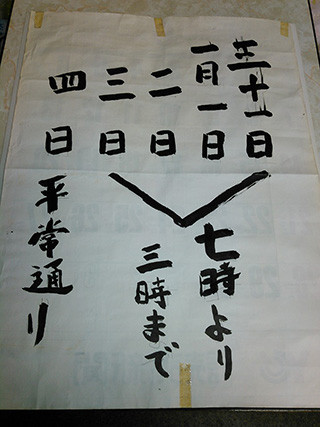 三十一日
一月一日
二日
三日
七時より
三時まで
四日 平常通り